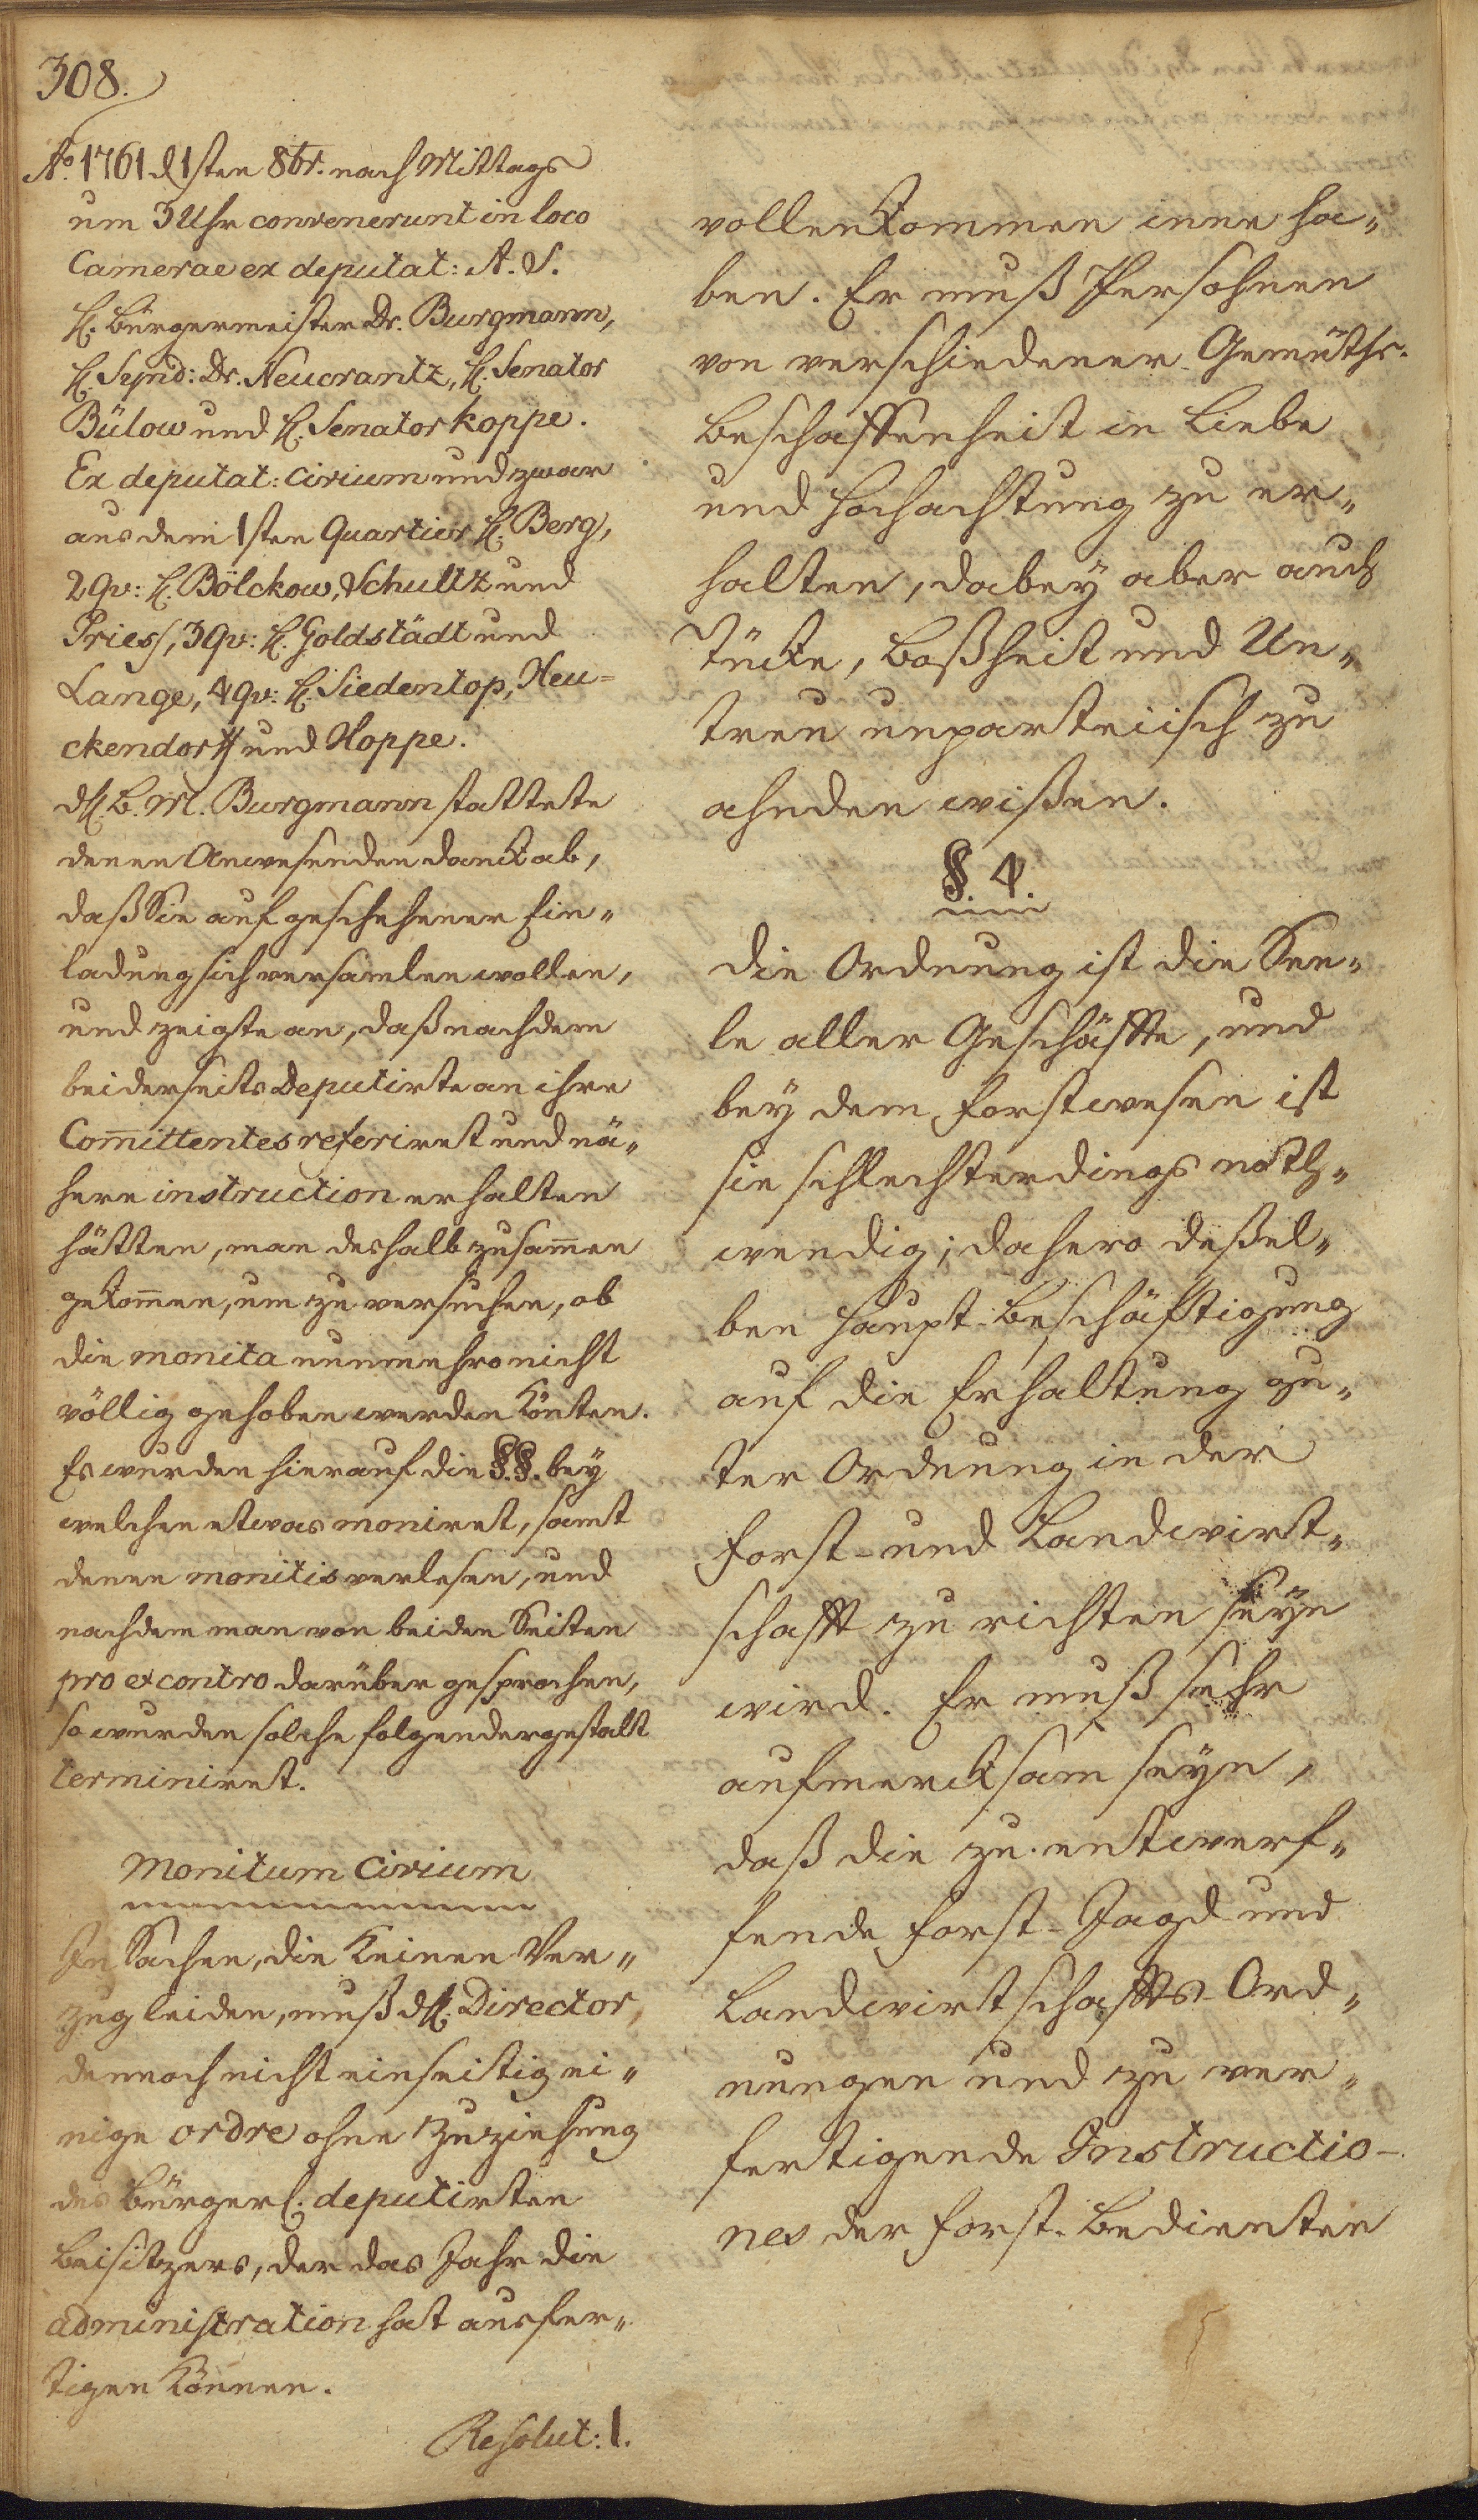 308.
Ao. 1761 d 1sten 8br. nach Mittags
um 3 Uhr convenerunt in loco
Camerae ex deputat: A. S.
H. Bürgermeister Dr. Burgmann,
H. Synd: Dr. Neucrantz, H. Senator
Bülow und H. Senator Koppe.
Ex deputat: Civium und zwar
aus dem 1sten Quartier H. Berg,
2 qv: H. Bölckow, Schultz und
Pries, 3 qv: H. Goldstädt und
Lange, 4 qv: H. Siedentop, Neu=
ckendorff und Hoppe.
dH. B. M. Burgmann stattete
denen Anwesenden danck ab,
daß Sie auf geschehener Ein„
ladung sich versamlen wollen,
und zeigte an, daß nachdem
beiderseits Deputirte an ihre
Com̄ittentes referiret und nä„
here instruction erhalten
hätten, man deshalb zusam̄en
gekom̄en, um zu versuchen, ob
die monita nunmehro nicht
völlig gehoben werden könten.
Es wurden hierauf die §.§. bey
welchen etwas moniret, samt
denen monitis verlesen, und
nachdem man von beiden Seiten
pro et contro darüber gesprochen,
so wurden solche folgendergestalt
terminiret.
Monitum Civium
In Sachen, die keinen Ver„
zug leiden, muß dH. Director,
dennoch nicht einseitig ei„
nige ordre ohne Zuziehung
des bürgerl. deputirten
Beisitzers, der das Jahr die
administration hat ausfer„
tigen können.
Resolut: 1.
vollenkommen inne ha„
ben. Er muß Persohnen
von verschiedener Gemüths-
Beschaffenheit in Liebe
und Hochachtung zu er„
halten, dabey aber auch
Tücke, Boßheit und Un„
treu unparteiisch zu
ahnden wißen.
§. 4.
Die Ordnung ist die See„
le aller Geschäffte, und
bey dem Forstwesen ist
sie schlechterdings noth„
wendig; dahero deßel„
ben Haupt-Beschäftigung
auf die Erhaltung gu„
ter Ordnung in der
Forst- und Landwirt„
schafft zu richten seyn
wird. Er muß sehr
aufmercksam seyn,
daß die zu entwerf„
fende Forst-Jagd- und
Landwirtschaffts-Ord„
nungen und zu ver„
fertigende Instructio-
nes der Forst-Bedienten